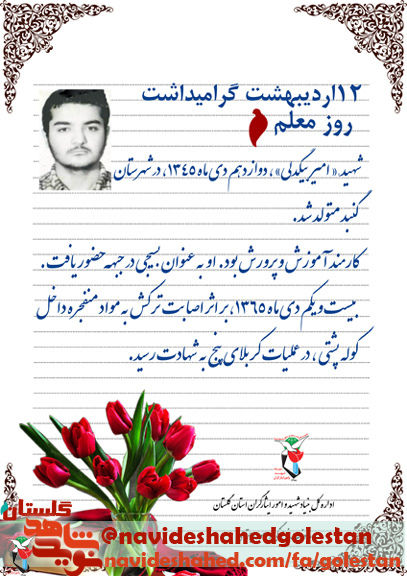 ۱۲اردیبهشت گرامیداشت
روز معلم
شهید « امیر بیگدلی» ، دوازدهم دی ماه ۱۳۴۵، در شهرستان
گنبد متولد شد.
کارمند آموزش و پرورش بود. او به عنوان بسیجی در جبهه حضور یافت.
بیست و یکم دی ماه ۱۳۶۵، بر اثر اصابت ترکش به مواد منفجره داخل
کوله پشتی ، در عملیات کربلای پنج به شهادت رسید.
اداره کل بنیاد شهید و امور ایثارگران استان گلستان
گلستان
نوید شاهد
@navideshahedgolestan
navideshahed.com/fa/golestan